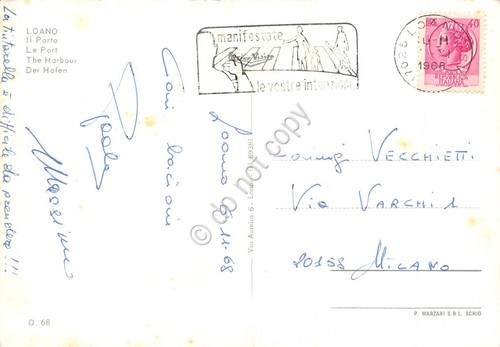 LOANO
Il Porto
Le Port
The Harbour
Der Hafen
La tintarella è difficile da prendere !!!
Loano 6-11-68
Cari bacioni
Paola
Massimo
O. 68
manifestate
le vostre intenzioni
17025 LOANO
1968
40
ITALIANA
Via Aurelia, 6
VECCHIETTI
VIA VARCHI 1
20158 MILANO
P. MARZARI S.R.L. SCHIO
do not copy